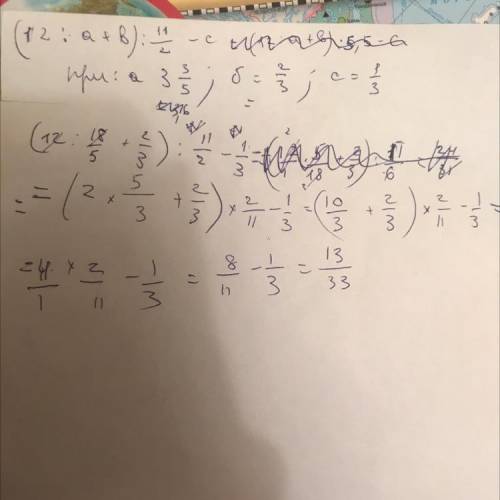 (12 : a + b) : 11/2 - c
при: a 3 3/5 ; б = 2/3 ; c = 1/3
(12 : 18/5 + 2/3) : 11/2 - 1/3 =
= = (2 × 5/3 + 2/3) × 2/11 - 1/3 = (10/3 + 2/3) × 2/11 - 1/3 =
= 4/1 × 2/11 - 1/3 = 8/11 - 1/3 = 13/33